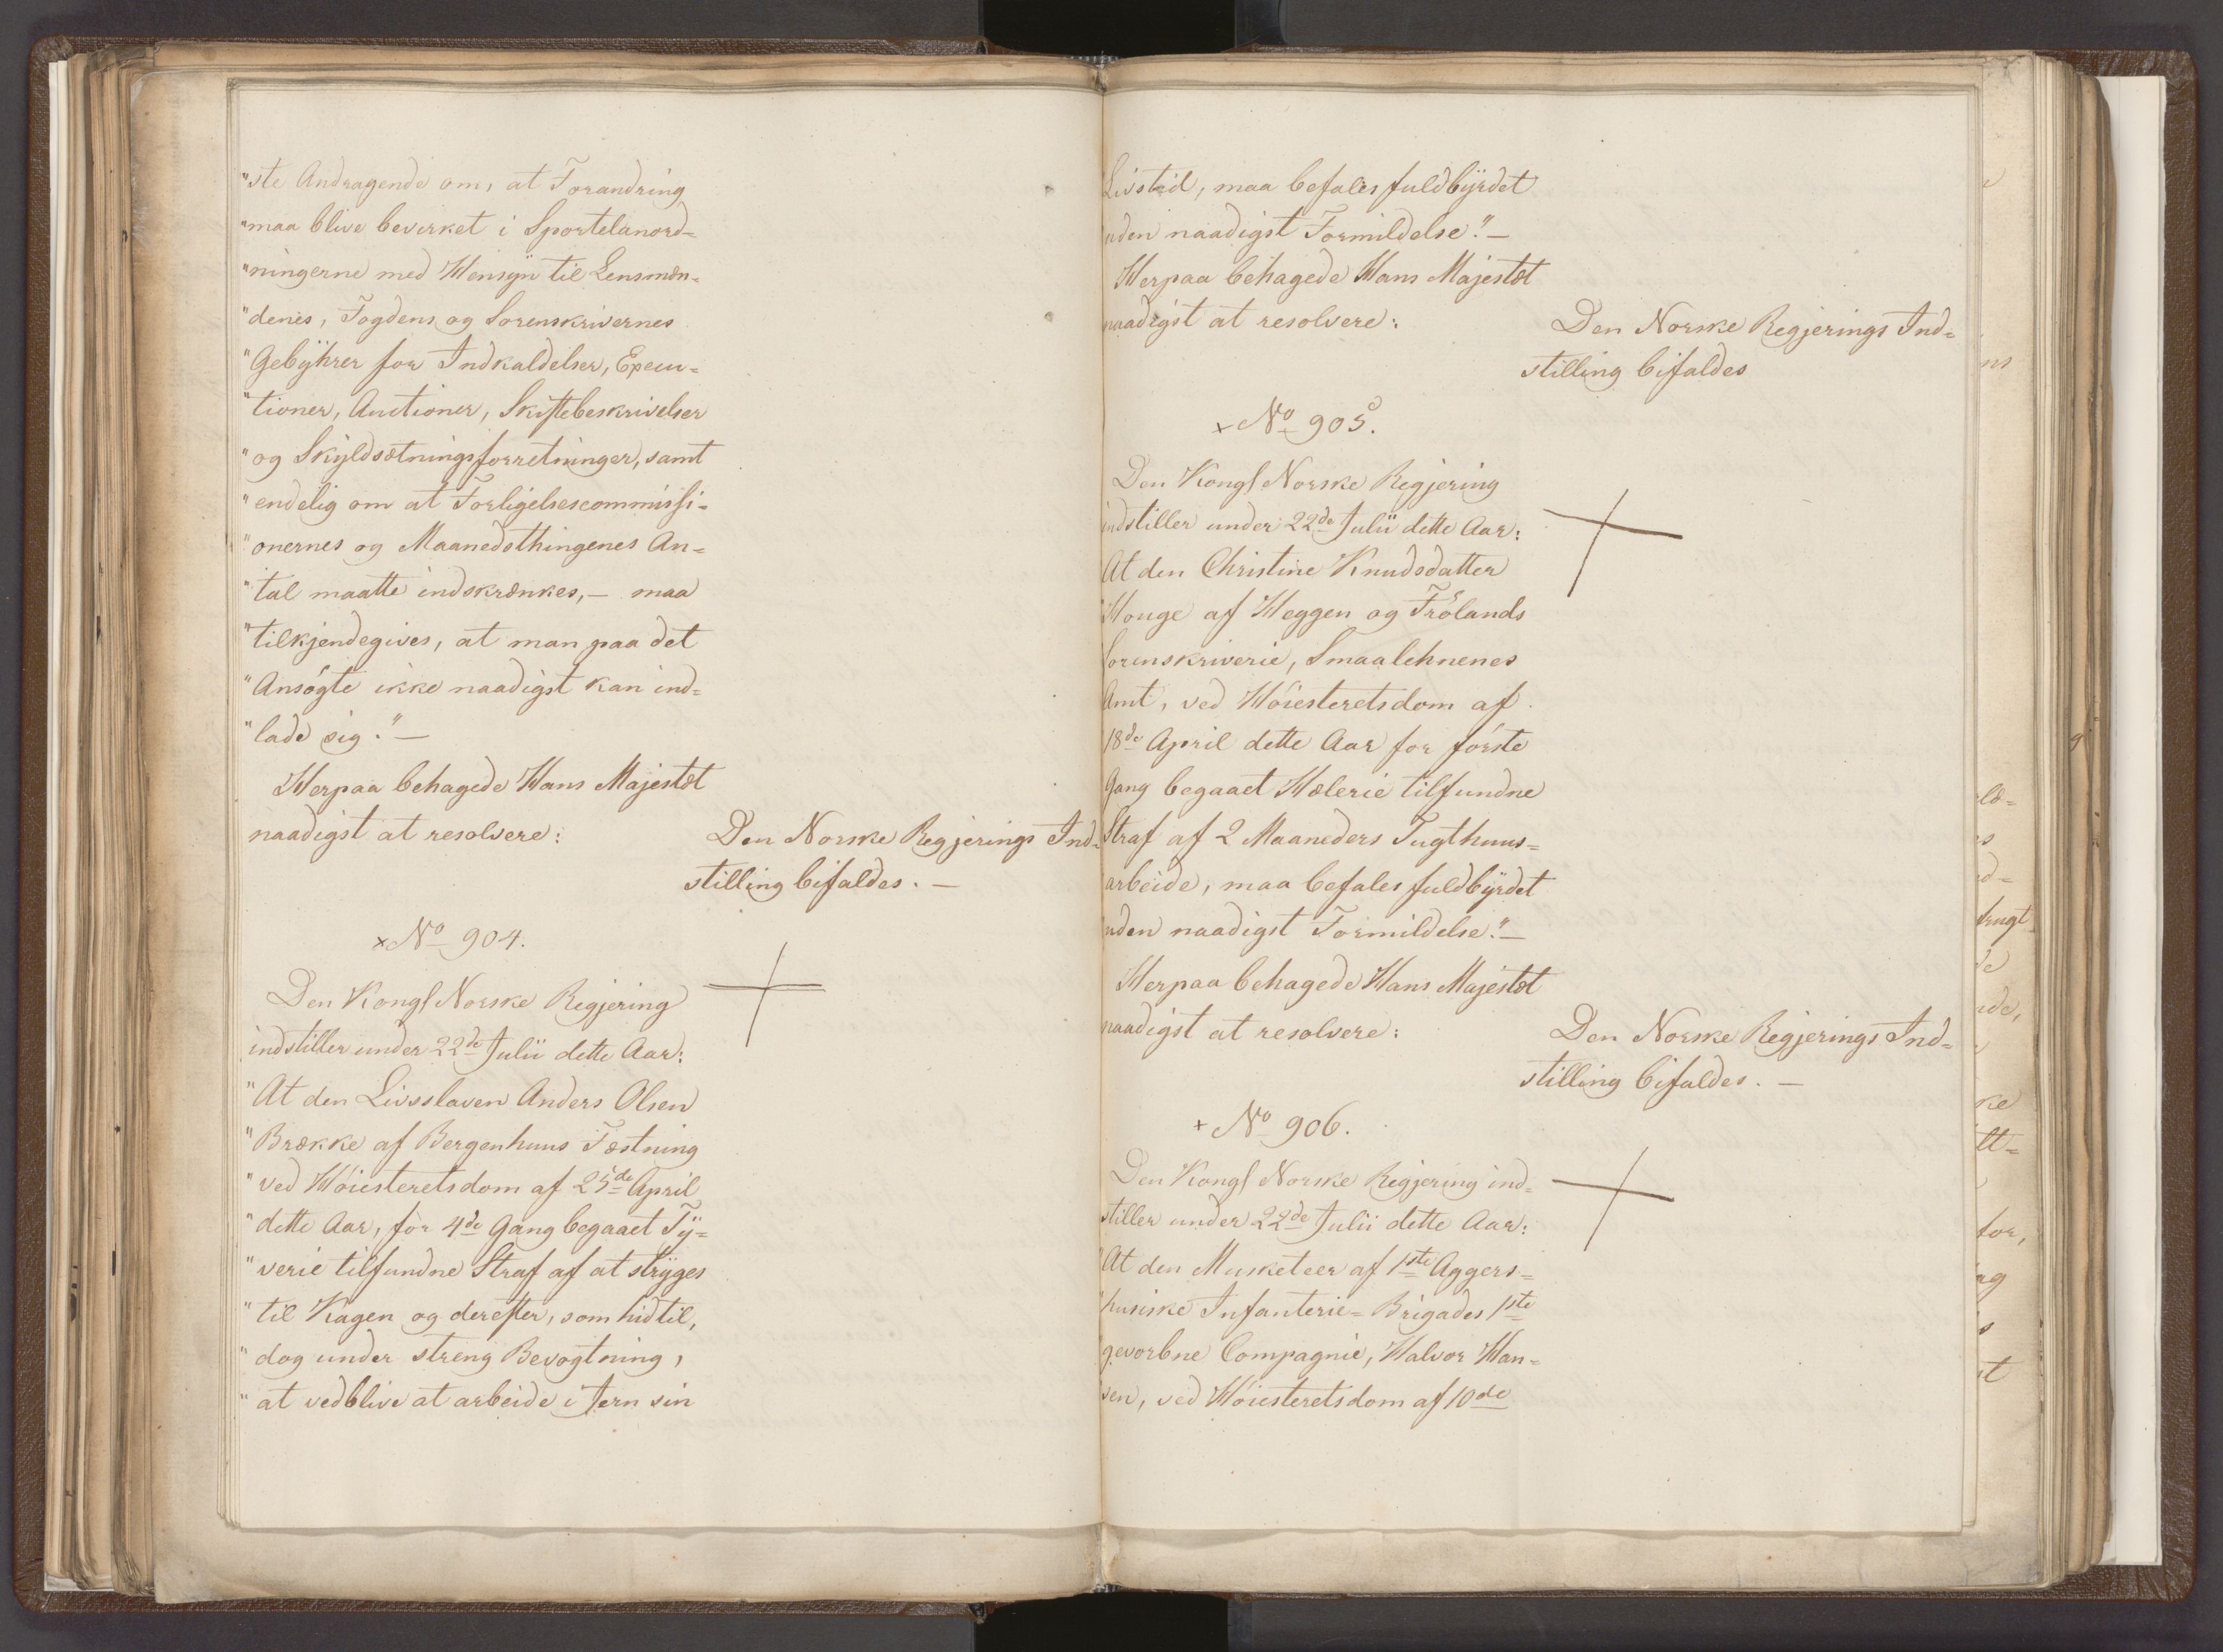 "ste Andragende om, at Forandring
"maa blive bevirket i Sportelanord=
"ningerne med Hensyn til Lensmæn=
"denes, Fogdens og Sorenskrivernes
"Gebyhrer for Indkaldelser, Execu=
"tioner, Auctioner, Skiftebeskrivelser
"og Skyldsætningsforretninger, samt
"endelig om at Forligelsescommissi=
"onernes og Maanedsthingenes An=
"tal maatte indskrænkes, — maa
"tilkjendegives, at man paa det
"Ansøgte ikke naadigst kan ind=
"lade sig." —
Herpaa behagede Hans Majestæt
naadigst at resolvere:
Den Norske Regjerings Ind=
stilling bifaldes. —
× No 904.
Den Kongl Norske Regjering
indstiller under 22de Julii dette Aar:
"At den Livsslaven Anders Olsen
"Brække af Bergenhuus Fæstning
"ved Høiesteretsdom af 25de April
"dette Aar, for 4de Gang begaaet Ty=
"verie tilfundne Straf af at stryges
"til Kagen og derefter, som hidtil,
"dog under streng Bevogtning,
"at vedblive at arbeide i Jern sin
Livstid, maa befales fuldbyrdet
uden naadigst Formildelse." —
Herpaa behagede Hans Majestæt
naadigst at resolvere:
Den Norske Regjerings Ind=
stilling bifaldes
× No 905.
Den Kongl Norske Regjering
indstiller under 22de Julii dette Aar:
At den Christine Knudsdatter
Houge af Heggen og Frølands
Sorenskriverie, Smaalehnenes
Amt, ved Høiesteretsdom af
18de April dette Aar for første
Gang begaaet Hælerie tilfundne
Straf af 2 Maaneders Tugthuus=
arbeide, maa befales fuldbyrdet
uden naadigst Formildelse." —
Herpaa behagede Hans Majestæt
naadigst at resolvere:
Den Norske Regjerings Ind=
stilling bifaldes. —
+ No 906.
Den Kongl Norske Regjering ind=
stiller under 22de Julii dette Aar:
At den Musketeer af 1ste Aggers=
"husiske Infanterie=Brigades 1ste
gevorbne Compagnie, Halvor Han=
sen, ved Høiesteretsdom af 10de